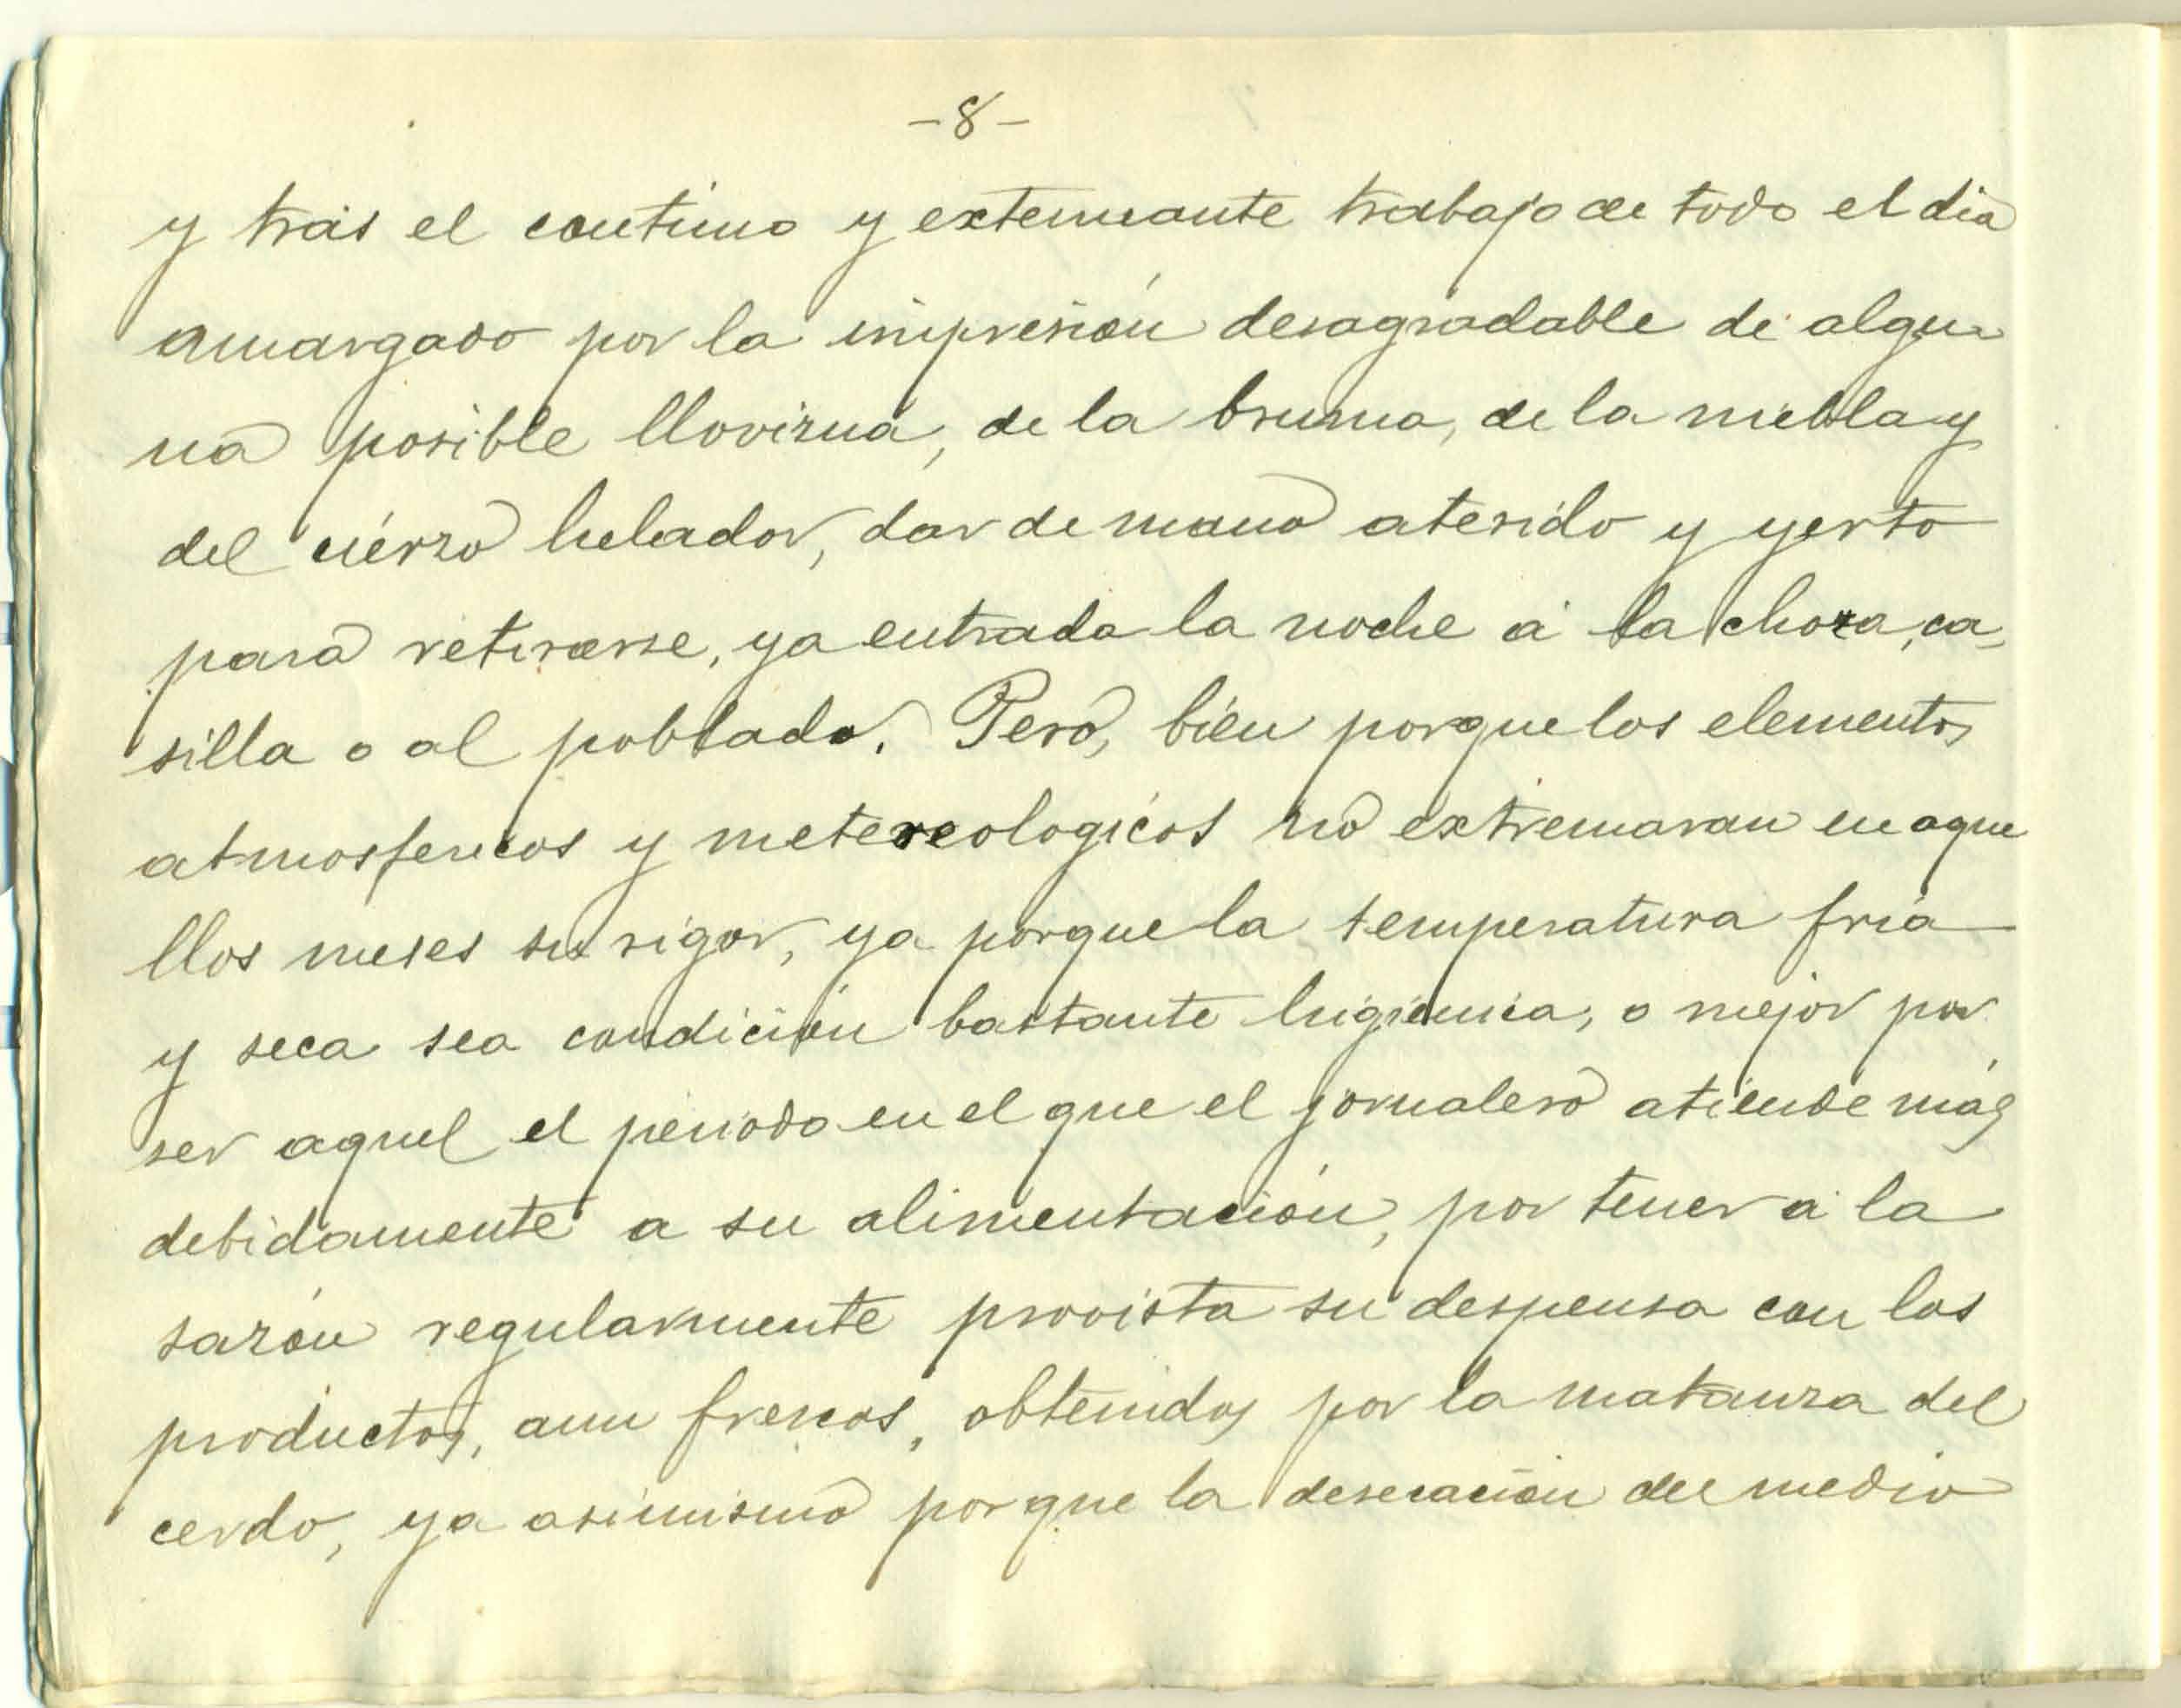 -8-
y trás el contínuo y extenuante trabajo de todo el dia
amargado por la impresión desagradable de algu-
na posible llovizna, de la bruma, de la niebla y
del cierzo helador, dar de mano aterido y yerto
para retirarse, ya entrada la noche á la choza, ca-
silla o al poblado. Pero, bien porque los elementos
atmosfericos y metereologicos no extremaran en aque
llos meses su rigor, ya porque la temperatura fria
y seca sea condición bastante higiénica, o mejor por
ser aquel el periodo en el que el jornalero atiende más
debidamente a su alimentación, por tener á la
sazón regularmente provista su despensa con los
productos, aun frescos, obtenidos por la matanza del
cerdo, ya asimismo porque la desecación del medio